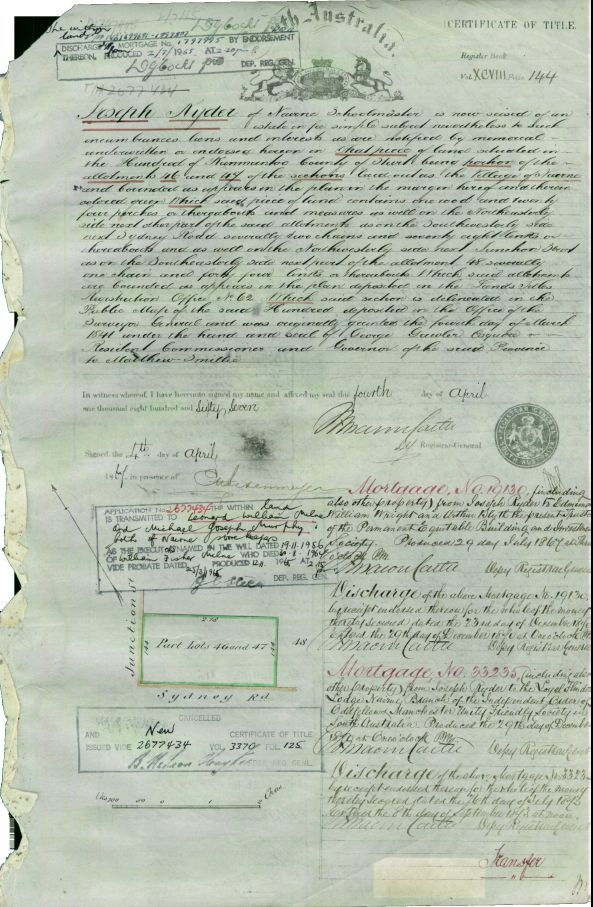 South Australia.
CERTIFICATE OF TITLE.
Register Book
Vol XCVIII Folio 144
DISCHARGE OF MORTGAGE No. 1797995 BY ENDORSEMENT
THEREON. PRODUCED 2/7/1965 AT 2-20pm
DEP. REG. GEN.
2677434
Joseph Ryder of Nairne Schoolmaster is now seised of an
estate in fee simple subject nevertheless to such
encumbrances liens and interests as are notified by memorial
underwritten or endorsed hereon in That piece of land situated in
the Hundred of Kanmantoo County of Sturt being portion of the
allotments 46 and 47 of the sections laid out as the Village of Nairne
and bounded as appears in the plan in the margin hereof and therein
colored green Which said piece of land contains one rood and twenty
four perches or thereabouts and measures as well on the Northeasterly
side next other part of the said allotments as on the Southwesterly side
next Sydney Road severally two chains and seventy eight links or
thereabouts and as well on the Northwesterly side next Junction Street
as on the Southeasterly side next part of the allotment 48 severally
one chain and forty four links or thereabouts Which said allotments
are bounded as appears in the plan deposited in the Lands Titles
Registration Office No. 62 Which said section is delineated in the
Public Map of the said Hundred deposited in the Office of the
Surveyor General and was originally granted the fourth day of March
1841 under the hand and seal of George Gawler Esquire
Resident Commissioner and Governor of the said Province
to Matthew Smillie
In witness whereof, I have hereunto signed my name and affixed my seal this fourth day of April
one thousand eight hundred and Sixty Seven
Dy Registrar-General
Signed, the 4th day of April
1867, in presence of
APPLICATION No. 2677434 THE WITHIN land
IS TRANSMITTED TO Leonard William Milne
and Michael Joseph Murphy
both of Nairne
AS THE EXECUTORS NAMED IN THE WILL DATED 19.11.1956
OF William Milne WHO DIED 1964
VIDE PROBATE DATED PRODUCED 1965 AT
DEP. REG. GEN.
Junction St
278
144
Part Lots 46 and 47
144
48
Sydney Rd
CANCELLED
AND New CERTIFICATE OF TITLE
ISSUED VIDE 2677434 VOL. 3370 FOL. 125
DEP. REG. GENL.
Lks 100 50 0 1 2 Chns
Mortgage, No. 19130, (including
also other property) from Joseph Ryder to Edmund
William Wright and Arthur Blyth the present Trustees
of the Permanent Equitable Building and Investment
Society. Produced 29 day July 1867 at Three
o'clock PM.
Depy Registrar General
Discharge of the above Mortgage No. 19130,
by receipt endorsed thereon for the whole of the money
thereby secured dated the 23rd day of December 1870
Entered the 29th day of December 1870 at One o'clock PM
Depy Registrar General
Mortgage, No. 33235, (including
other property) from Joseph Ryder to the Loyal
Lodge Nairne Branch of the Independent Order of
Oddfellows Manchester Unity Friendly Society in
South Australia. Produced the 29th day of December
1870 at One o'clock PM.
Depy Registrar General
Discharge of the above Mortgage No. 33235
by receipt endorsed thereon for the whole of the money
thereby secured dated the 26th day of July 1873
Entered the 8th day of September 1873 at noon.
Depy Registrar General
Transfer